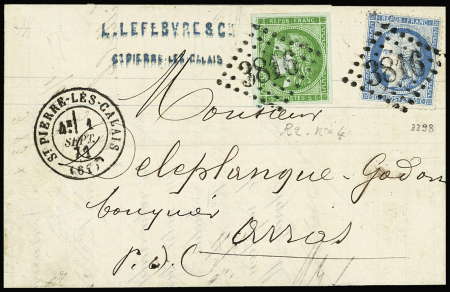 L. LEFEBVRE & Cie
St PIERRE-LES-CALAIS
REPUB. FRANC.
REPUB. FRANC.
3816
3816
St PIERRE-LÈS-CALAIS
1
SEPT.
(61)
Monsieur
Deleplanque-Godon
banquier
Arras
P. d. C.
2298